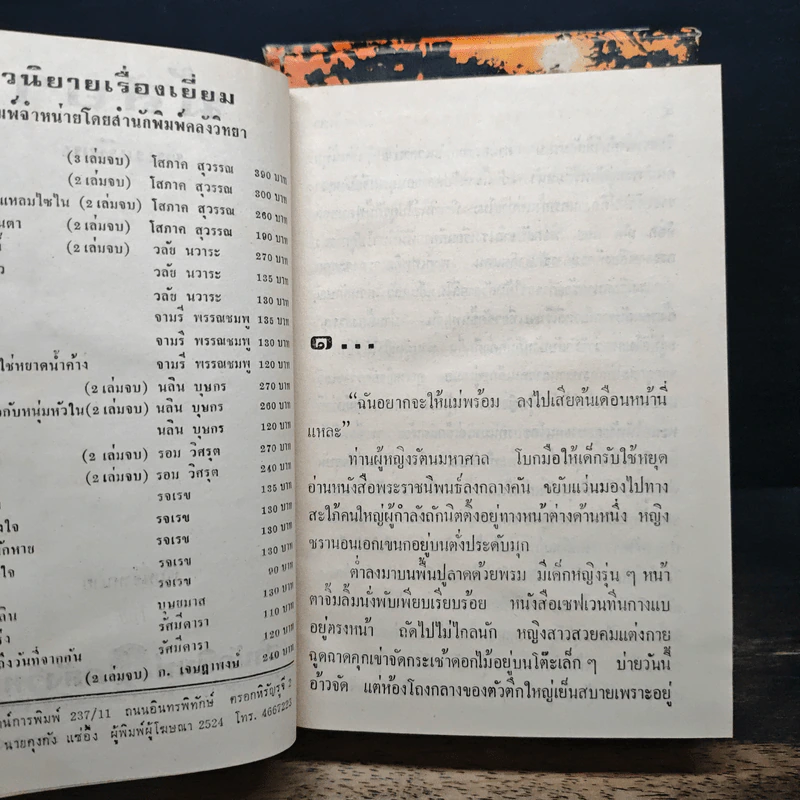 วนิยายเรื่องเยี่ยม
มพ์จำหน่ายโดยสำนักพิมพ์คลังวิทยา
(๓ เล่มจบ) โสภาค สุวรรณ 390 บาท
(2 เล่มจบ) โสภาค สุวรรณ 300 บาท
แหลมไซไน (2 เล่มจบ) โสภาค สุวรรณ 260 บาท
นตา (2 เล่มจบ) โสภาค สุวรรณ 190 บาท
(2 เล่มจบ) วลัย นวาระ 270 บาท
ว วลัย นวาระ 135 บาท
วลัย นวาระ 130 บาท
จามรี พรรณชมพู 135 บาท
จามรี พรรณชมพู 130 บาท
ใช่หยาดน้ำค้าง จามรี พรรณชมพู 120 บาท
(2 เล่มจบ) นลิน บุษกร 270 บาท
อกับหนุ่มหัวใน(2 เล่มจบ) นลิน บุษกร 260 บาท
นลิน บุษกร 120 บาท
(2 เล่มจบ) รอม วิศรุต 270 บาท
(2 เล่มจบ) รอม วิศรุต 240 บาท
รจเรข 135 บาท
รจเรข 130 บาท
งใจ รจเรข 130 บาท
รักหาย รจเรข 130 บาท
ใจ รจเรข 90 บาท
บุษยมาส 130 บาท
ลิน รัศมีดารา 110 บาท
รัศมีดารา 120 บาท
ถึงวันที่จากกัน (2 เล่มจบ) ก. เจษฎาพงษ์ 240 บาท
ณ์การพิมพ์ 237/11 ถนนอินทรพิทักษ์ ตรอกหิรัญรูจี 2
นายคุงกัง แซ่อึ้ง ผู้พิมพ์ผู้โฆษณา 2524 โทร. 4667225
๑...
“ฉันอยากจะให้แม่พร้อม ลงไปเสียต้นเดือนหน้านี่
แหละ”
ท่านผู้หญิงรัตนมหาศาล โบกมือให้เด็กรับใช้หยุด
อ่านหนังสือพระราชนิพนธ์ลงกลางคัน ขยับแว่นมองไปทาง
สะใภ้คนใหญ่ผู้กำลังถักนิตติ้งอยู่ทางหน้าต่างด้านหนึ่ง หญิง
ชรานอนเอกเขนกอยู่บนตั่งประดับมุก
ต่ำลงมาบนพื้นปูลาดด้วยพรม มีเด็กหญิงรุ่น ๆ หน้า
ตาจิ้มลิ้มนั่งพับเพียบเรียบร้อย หนังสือเซฟเวนทีนกางแบ
อยู่ตรงหน้า ถัดไปไม่ไกลนัก หญิงสาวสวยคมแต่งกาย
ฉูดฉาดคุกเข่าจัดกระเช้าดอกไม้อยู่บนโต๊ะเล็ก ๆ บ่ายวันนี้
อ้าวจัด แต่ห้องโถงกลางของตัวตึกใหญ่เย็นสบายเพราะอยู่